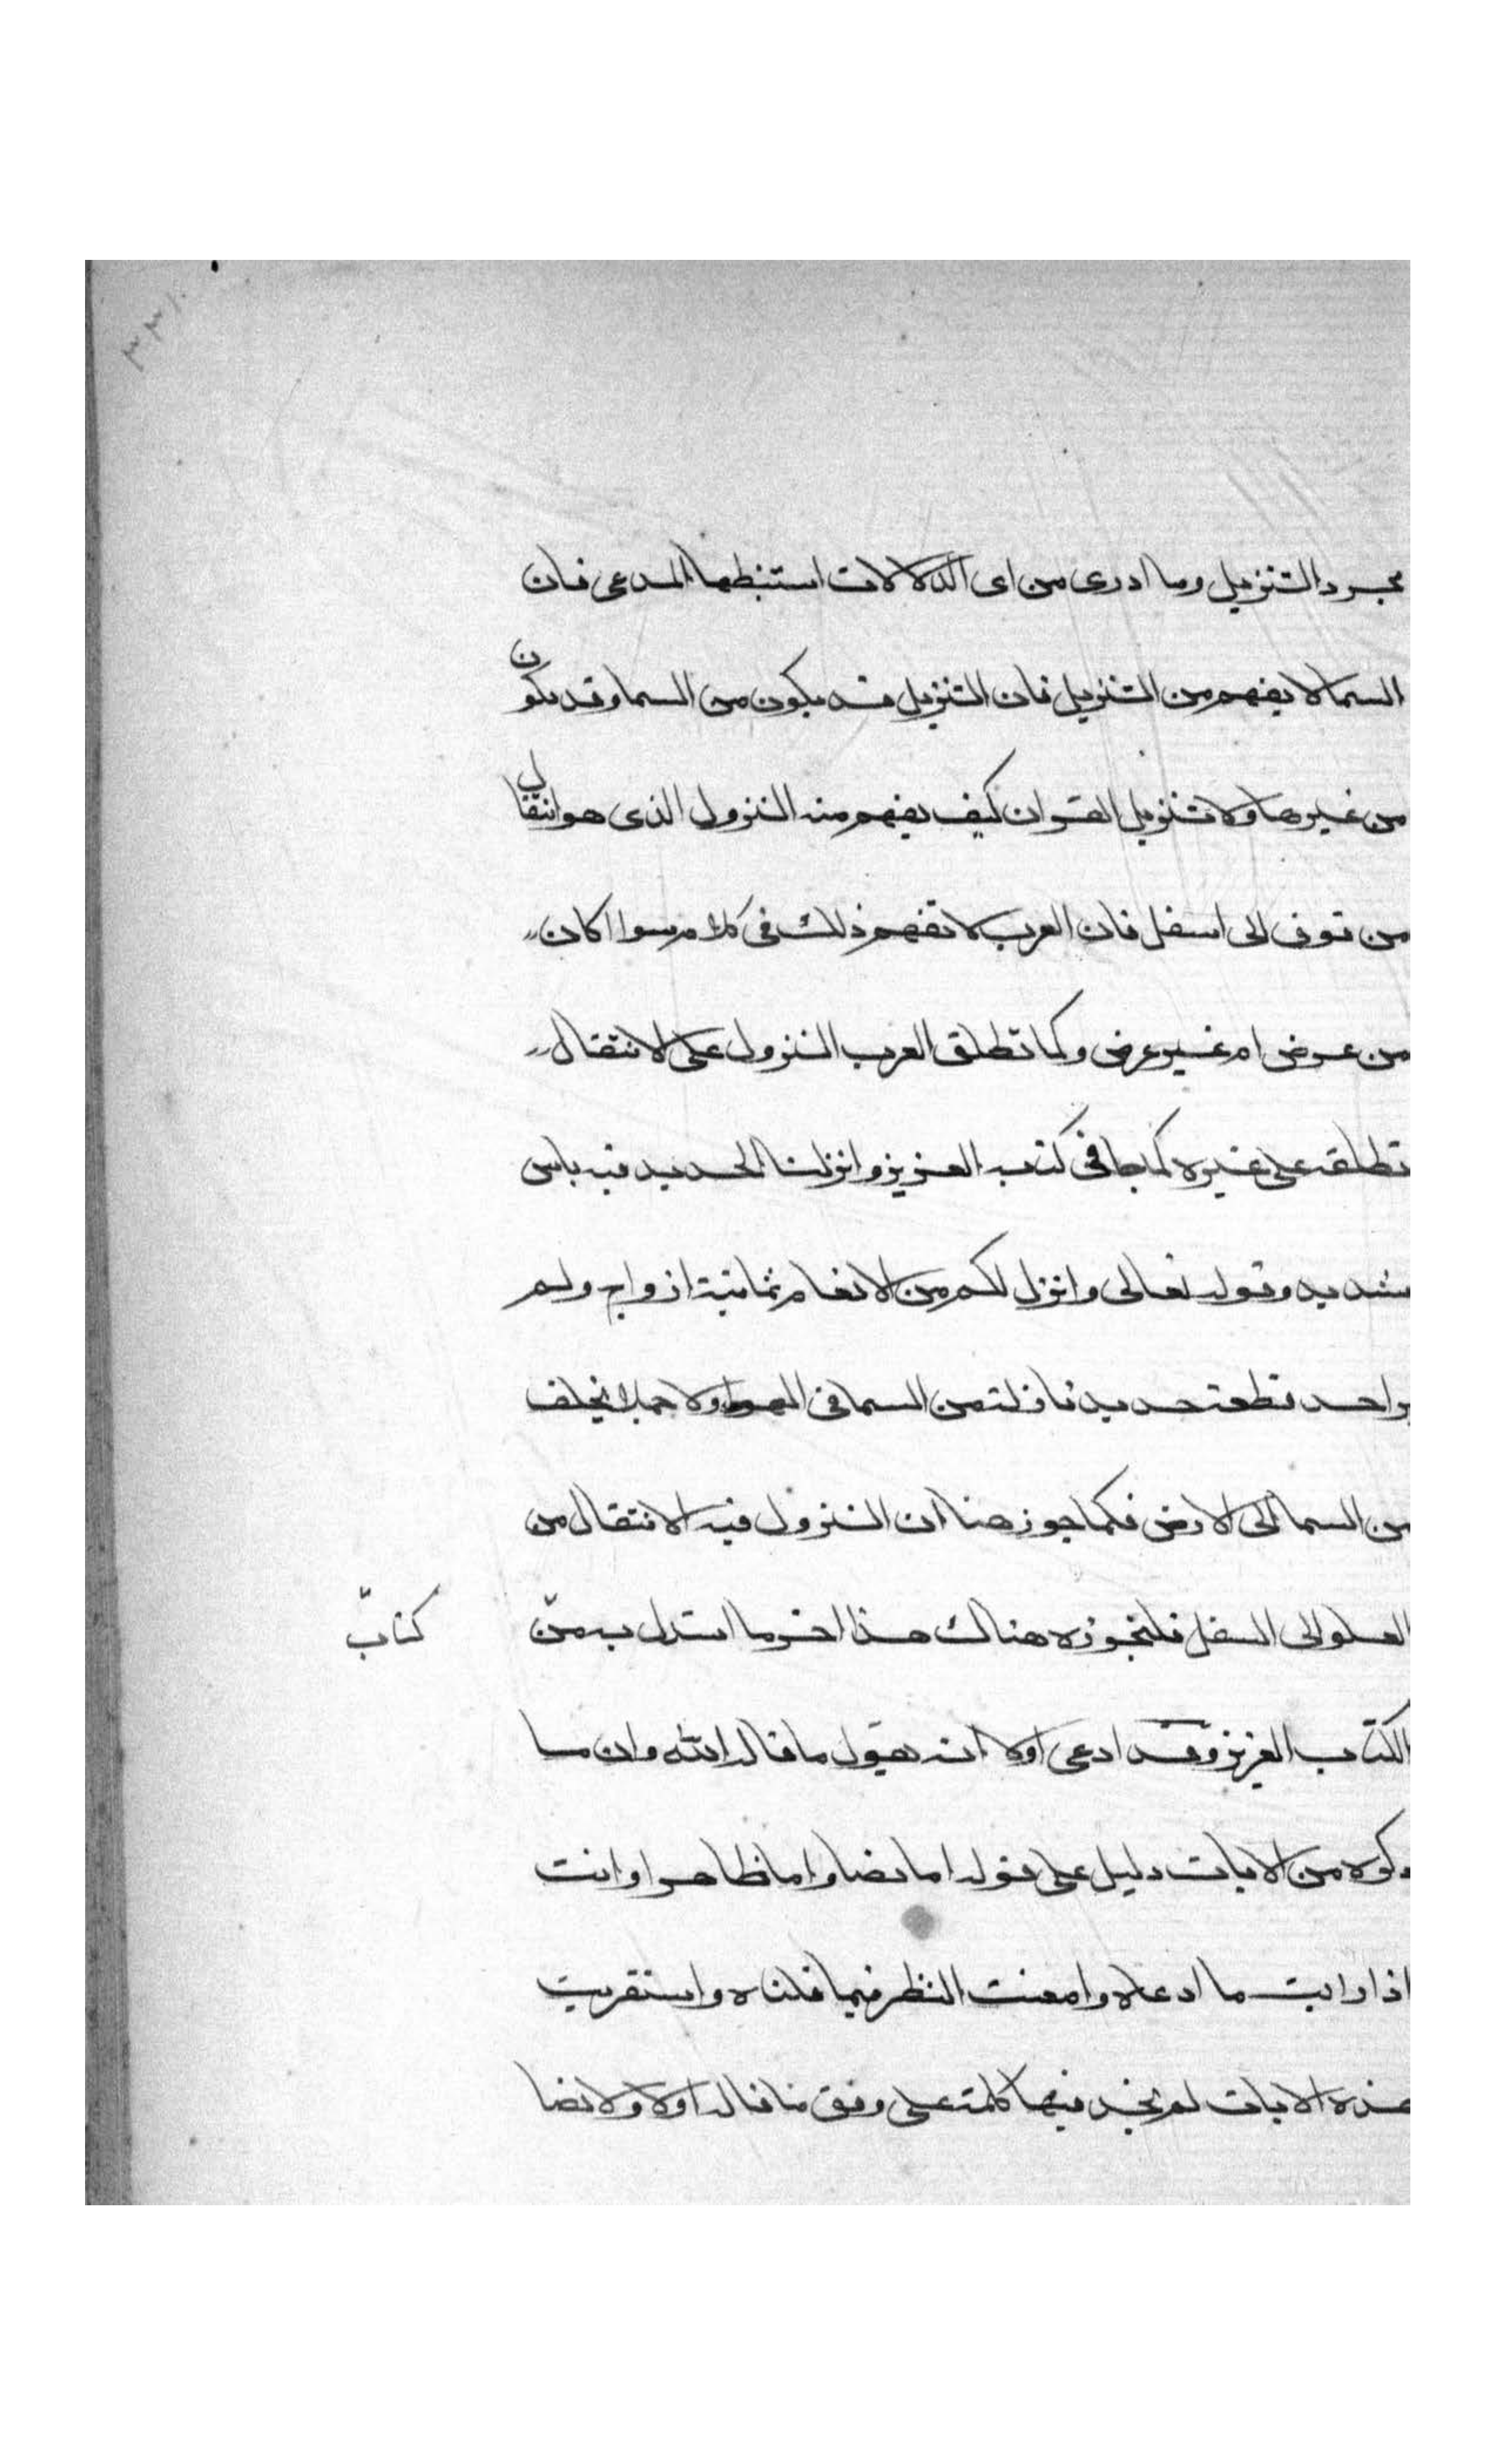 ٣٣١
مجرد التنزيل وما ادرى من اى الدلالات استنبطها المدعى فان
السما لا يفهم من التنزيل فان التنزيل قد يكون من السما وقد يكون
من غيرها ولا تنزيل القران كيف يفهم منه النزول الذى هو انتقال
من فوق الى اسفل فان العرب لا تفهم ذلك فى كلام سوا كان
من عرض ام غير عرض وكما تطلق العرب النزول على الانتقال
تطلقه على غيره كما جا فى كتب العزيز وانزلنا الحديد فيه باس
شديد وقوله تعالى وانزل لكم من الانعام ثمانية ازواج ولم
احد قطعة حديد نازلة من السما فى الهوا ولا جملا يحلف
من السما الى الارض فكما جوز هنا ان النزول فيه الانتقال من
العلو الى السفل فلنجوزه هناك هذا اخر ما استدل به من
كتاب
الكتب العزيز وقد ادعى اولا انه يقول ما قاله الله وان ما
ذكره من الايات دليل على قوله اما نصا واما ظاهرا وانت
اذا رايت ما ادعاه وامعنت النظر فيما قلناه واستقريت
هذه الايات لم تجد فيها كلمة على وفق ما قاله اولا ولا نصا